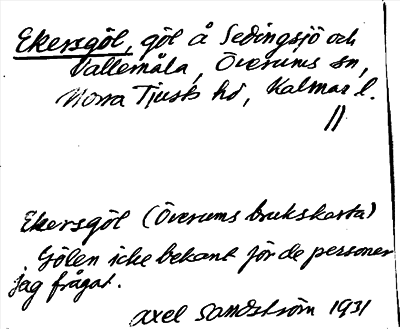 Ekersgöl, göl å Sedingsjö och
Vallemåla, Överums sn,
Norra Tjusts hd, Kalmar l.
11
Ekersgöl (Överums brukskarta)
Gölen icke bekant för de personer
jag frågat.
Axel Sandström 1931